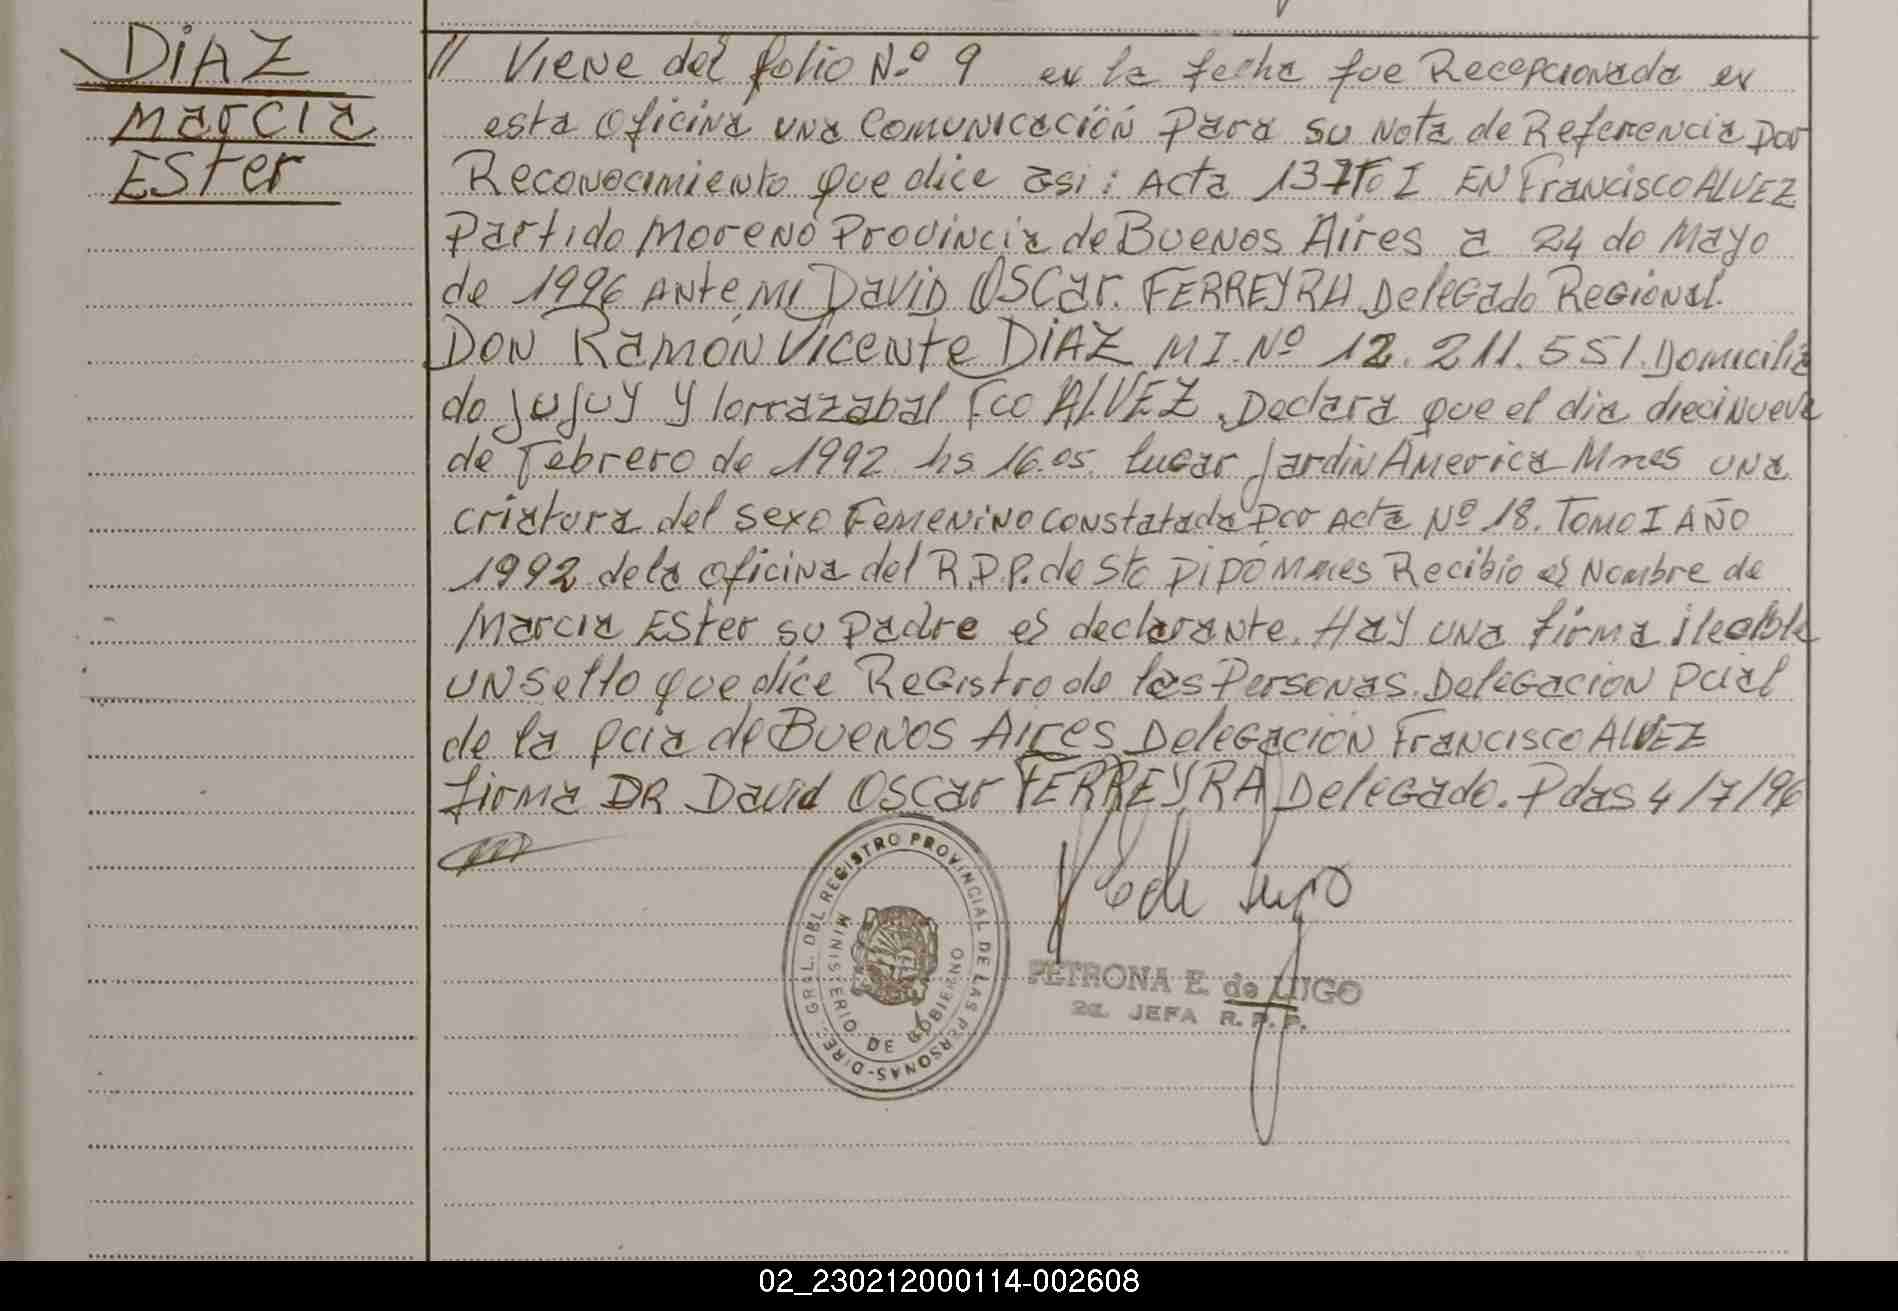 DiAZ
Marcia
ESter
// Viene del folio N.º 9 en la fecha fue Recepcionada en
esta oficina una Comunicación Para su Nota de Referencia por
Reconocimiento que dice asi: Acta 137 Tº I EN Francisco ALVEZ
Partido Moreno Provincia de Buenos Aires a 24 de Mayo
de 1996 ANte Mi David OSCar. FERREYRA Delegado Regional.
DON Ramón Vicente DiAZ MI.Nº 12.211.551. Domicilia
do JuJuY y lorrazabal Fco ALVEZ. Declara que el dia diecinueve
de Febrero de 1992 hs 16.05. lugar Jardin America Mnes una
criatura del sexo Femenino constatada por Acta Nº 18. Tomo I AÑO
1992 de la oficina del R.P.P. de Sto Pipó Mnes Recibio el Nombre de
Marcia ESter su Padre es declarante. Hay una firma ilegible
UN Sello que dice Registro de las Personas. Delegacion Pcial
de la pcia de Buenos Aires Delegación Francisco ALVEZ
firma DR David OSCar FERREYRA Delegado. Pdas 4/7/96
DIRE. GRAL. DEL REGISTRO PROVINCIAL DE LAS PERSONAS-
MINISTERIO DE GOBIERNO
de Lugo
PETRONA E. de LUGO
2a. JEFA R.P.P.
02_230212000114-002608